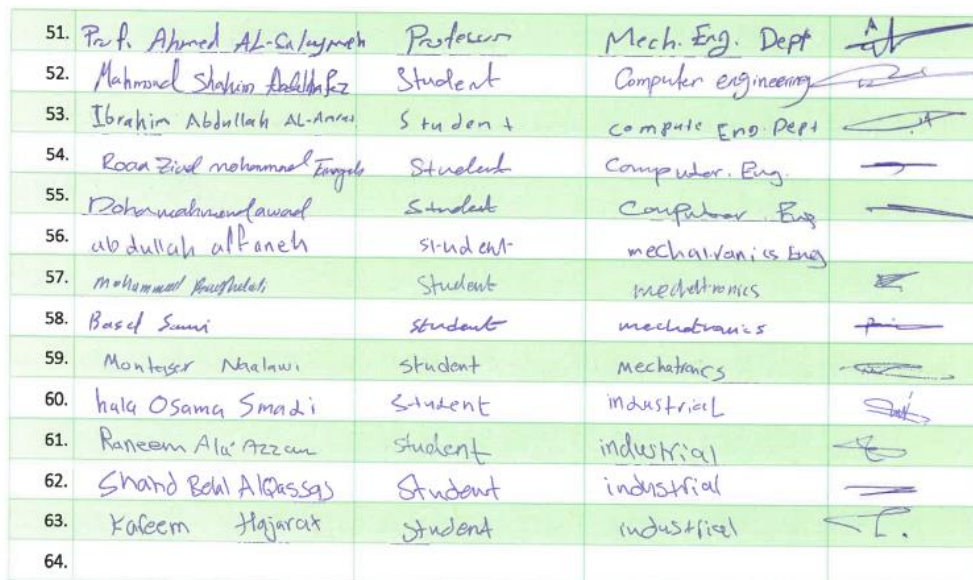 51. Prof. Ahmed AL-Salaymeh Professor Mech. Eng. Dept
52. Mahmoud Shahin Student Computer engineering
53. Ibrahim Abdullah Student compute Eng. Dept
54. Roaa Ziad mohammad Student Computer. Eng.
55. Doha mahmoud awad Student Computer Eng
56. abdullah affaneh student mechatronics Eng
57. Mohammad Student mechatronics
58. Basel Sami student mechatronics
59. Montaser Naalawi student mechatronics
60. hala Osama Smadi Student industrial
61. Raneem Ala' Azzam student industrial
62. Shahd Belal AlQassas Student industrial
63. Kareem Hajarat student industrial
64.